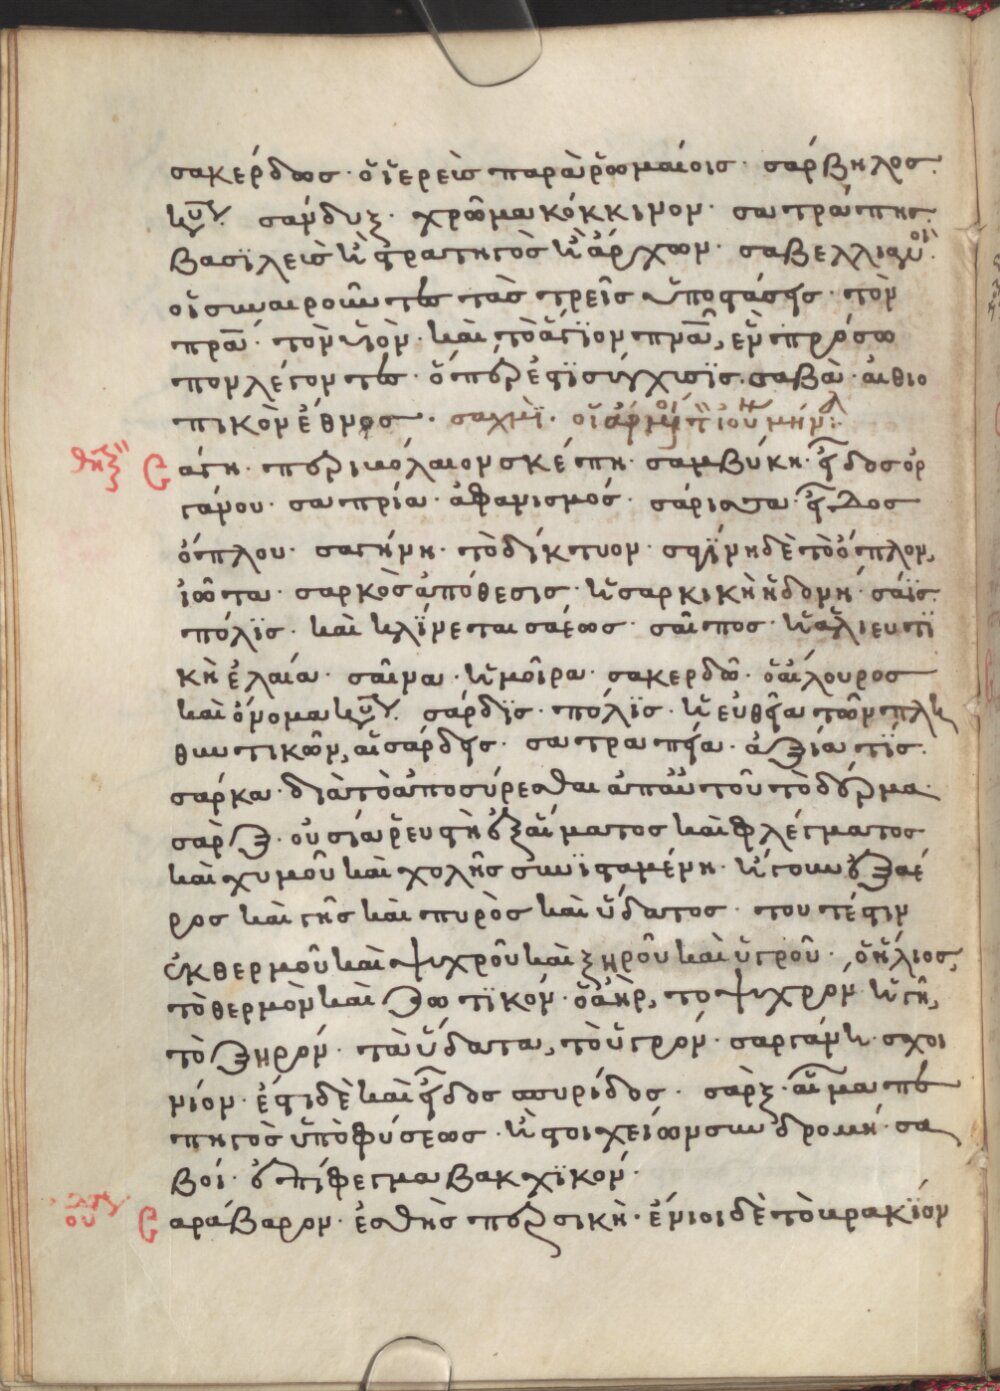 σακέρδωσ· ὁ ἱερεὶσ παρὰ ῥωμαίοισ· σάρβηλοσ·
κύ σάνδυξ· χρῶμα κόκκινον· σατράπησ·
βασϊλεισ κ στρατηγὸσ κ ἄρχων· σαβελλιανοὶ·
οἱ συναιροῦντεσ τὰσ τρεῖσ ὑποστάσεισ· τὸν
πρα· τὸν υἱὸν· καὶ τὸ ἅγϊον πνα, εν προσω
πον λέγοντεσ· ὅπερ ἐστϊ σύγχισϊσ. σαβὰ· αἰθιο
πικὸν ἔθνοσ· σαχμὶ·
θη
Σάγη· περικόλαιον σκέπη· σαμβύκη· εἶδοσ ὀρ
γάνου· σαπρία· ἀφανισμόσ· σάρισσα· εἶδοσ
ὅπλου· σαγήνη· τὸ δίκτυον· σαγϊνη δὲ τὸ ὅπλον,
ἰῶτα· σαρκὸσ ἀπόθεσισ· κ σαρκικὴ ἡδονὴ· σάϊσ·
πόλϊσ· καὶ κλϊνεται σάεωσ· σαῖποσ· κ ἁλιευτϊ
κὴ ἐλαία· σαῖνα· κ μοῖρα· σακερδῶ· ὁ αἴλουροσ
καὶ ὄνομα κύ· σάρδϊσ· πόλϊσ· κ εὐθεῖα τῶν πλη
θυντικῶν, αἱ σάρδεισ· σατραπεία· ἀξία τϊσ·
σάρκα· διὰ τὸ ἀποσύρεσθαι ἀπ αὐτοῦ τὸ δέρμα·
σὰρξ· οὐσία ῥευστὴ ἐξ αἵματοσ καὶ φλέγματοσ
καὶ χυμοῦ καὶ χολῆσ συνϊσταμένη· κ γουν ἐξ αέ
ροσ καὶ γῆσ καὶ πυρὸσ καὶ ὕδατοσ· τουτέστιν
ἐκ θερμοῦ καὶ ψυχροῦ καὶ ξηροῦ καὶ ὑγροῦ· ὁ ἥλιοσ,
τὸ θερμὸν καὶ ζωτϊκόν· ὁ ἀὴρ, το ψυχρον κ γῆ,
τὸ ξηρόν· τὰ ὕδατα, τὸ ὑγρόν· σαργάνη· σχοι
νίον· ἐστι δὲ καὶ εἶδοσ σπυρίδοσ· σὰρξ· αἷμα πε
πηγὸσ ὑπὸ φύσεωσ· κ στοιχείων συνδρομή· σα
βοί· ἐπίφεγμα βακχϊκόν·
Σαράβαρον· ἐσθὴσ περσικὴ· ἔνιοι δὲ τὸ κρακϊον